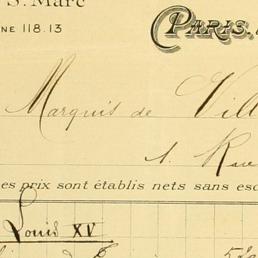 S. Marc
NE 118.13
PARIS,
Marquis de Vill
1. Rue
es prix sont établis nets sans esc
Louis XV